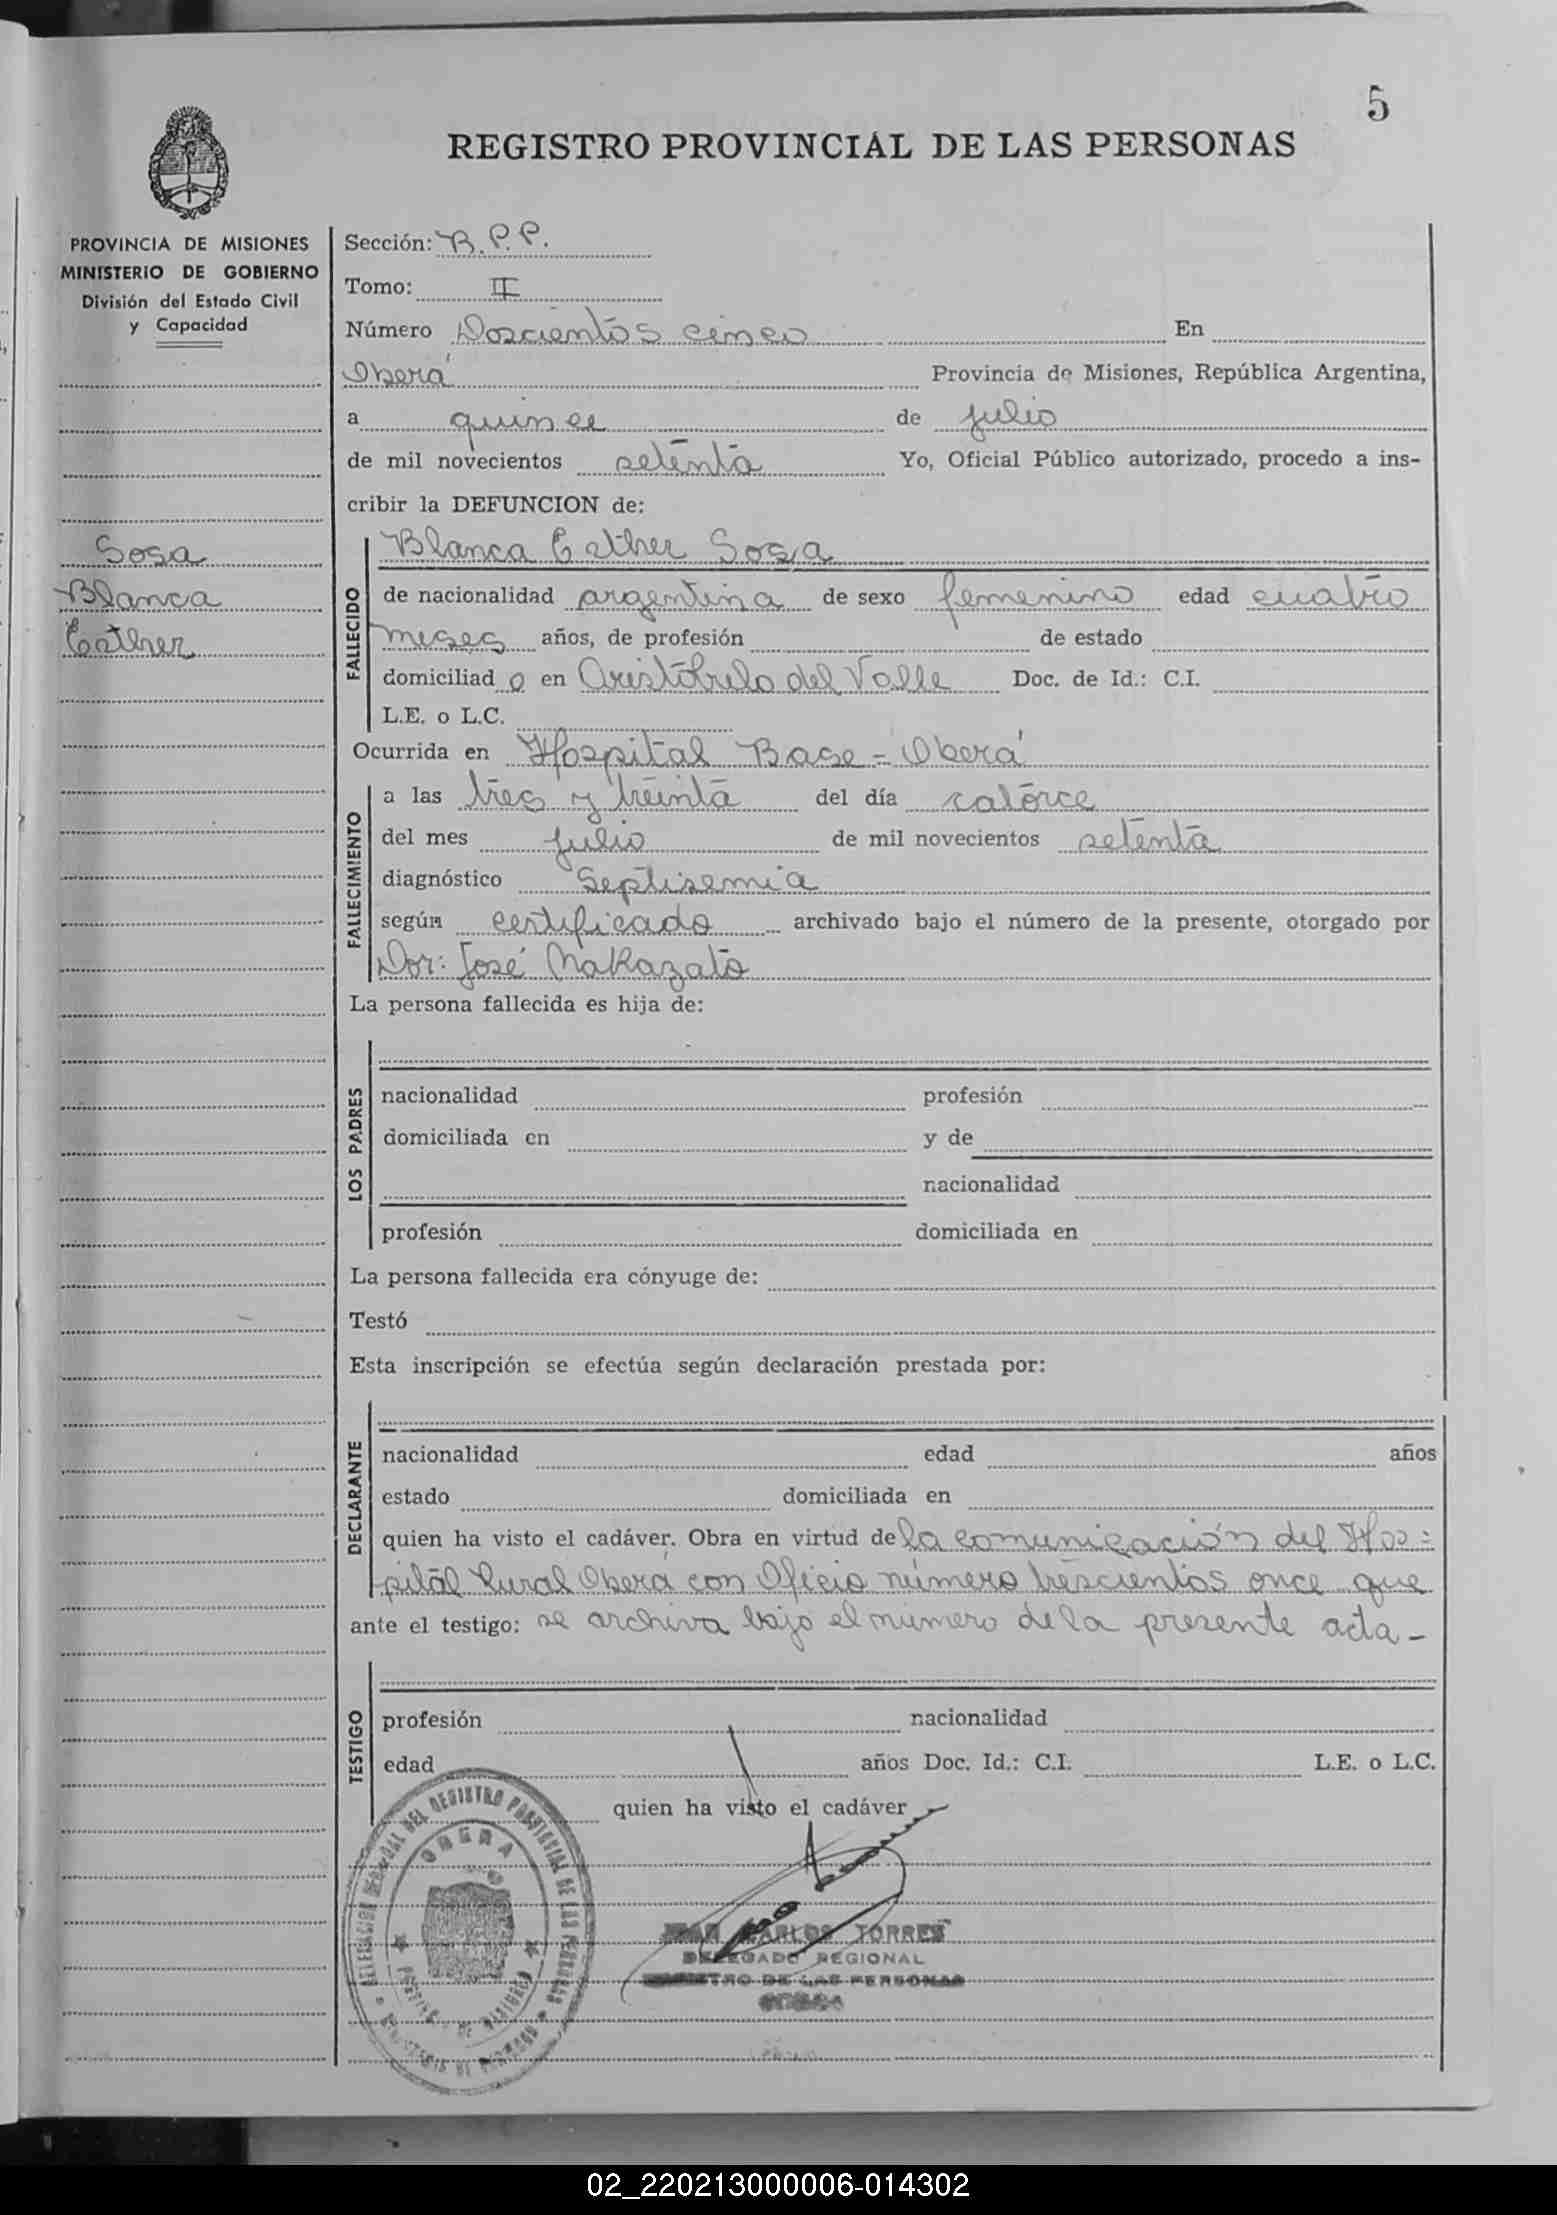 5
REGISTRO PROVINCIAL DE LAS PERSONAS
PROVINCIA DE MISIONES
MINISTERIO DE GOBIERNO
División del Estado Civil
y Capacidad
Sosa
Blanca
Esther
Sección: B.P.P.
Tomo: II
Número Doscientos cinco En
Oberá Provincia de Misiones, República Argentina,
a quince de julio
de mil novecientos setenta Yo, Oficial Público autorizado, procedo a ins-
cribir la DEFUNCION de:
FALLECIDO
Blanca Esther Sosa
de nacionalidad argentina de sexo femenino edad cuatro
meses años, de profesión de estado
domiciliad o en Aristóbulo del Valle Doc. de Id.: C.I.
L.E. o L.C.
Ocurrida en Hospital Base = Oberá
FALLECIMIENTO
a las tres y treinta del día catorce
del mes julio de mil novecientos setenta
diagnóstico Septisemia
según certificado archivado bajo el número de la presente, otorgado por
Dor: José Nakazato
La persona fallecida es hija de:
LOS PADRES
nacionalidad profesión
domiciliada en y de
nacionalidad
profesión domiciliada en
La persona fallecida era cónyuge de:
Testó
Esta inscripción se efectúa según declaración prestada por:
DECLARANTE
nacionalidad edad años
estado domiciliada en
quien ha visto el cadáver. Obra en virtud de la comunicación del Hos=
pital Rural Oberá con Oficio número trescientos once que
ante el testigo: se archiva bajo el número de la presente acta -
TESTIGO
profesión nacionalidad
edad años Doc. Id.: C.I. L.E. o L.C.
quien ha visto el cadáver
DELEGACION REGIONAL DEL REGISTRO PROVINCIAL DE LAS PERSONAS
OBERA
MINISTERIO DE GOBIERNO
PROVINCIA DE MISIONES
JUAN CARLOS TORRES
DELEGADO REGIONAL
REGISTRO DE LAS PERSONAS
OBERA
02_220213000006-014302